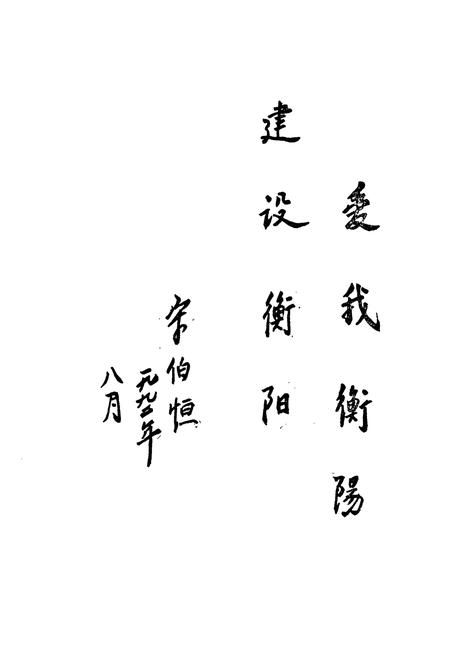 爱我衡陽
建设衡阳
宋伯恒
一九九二年
八月